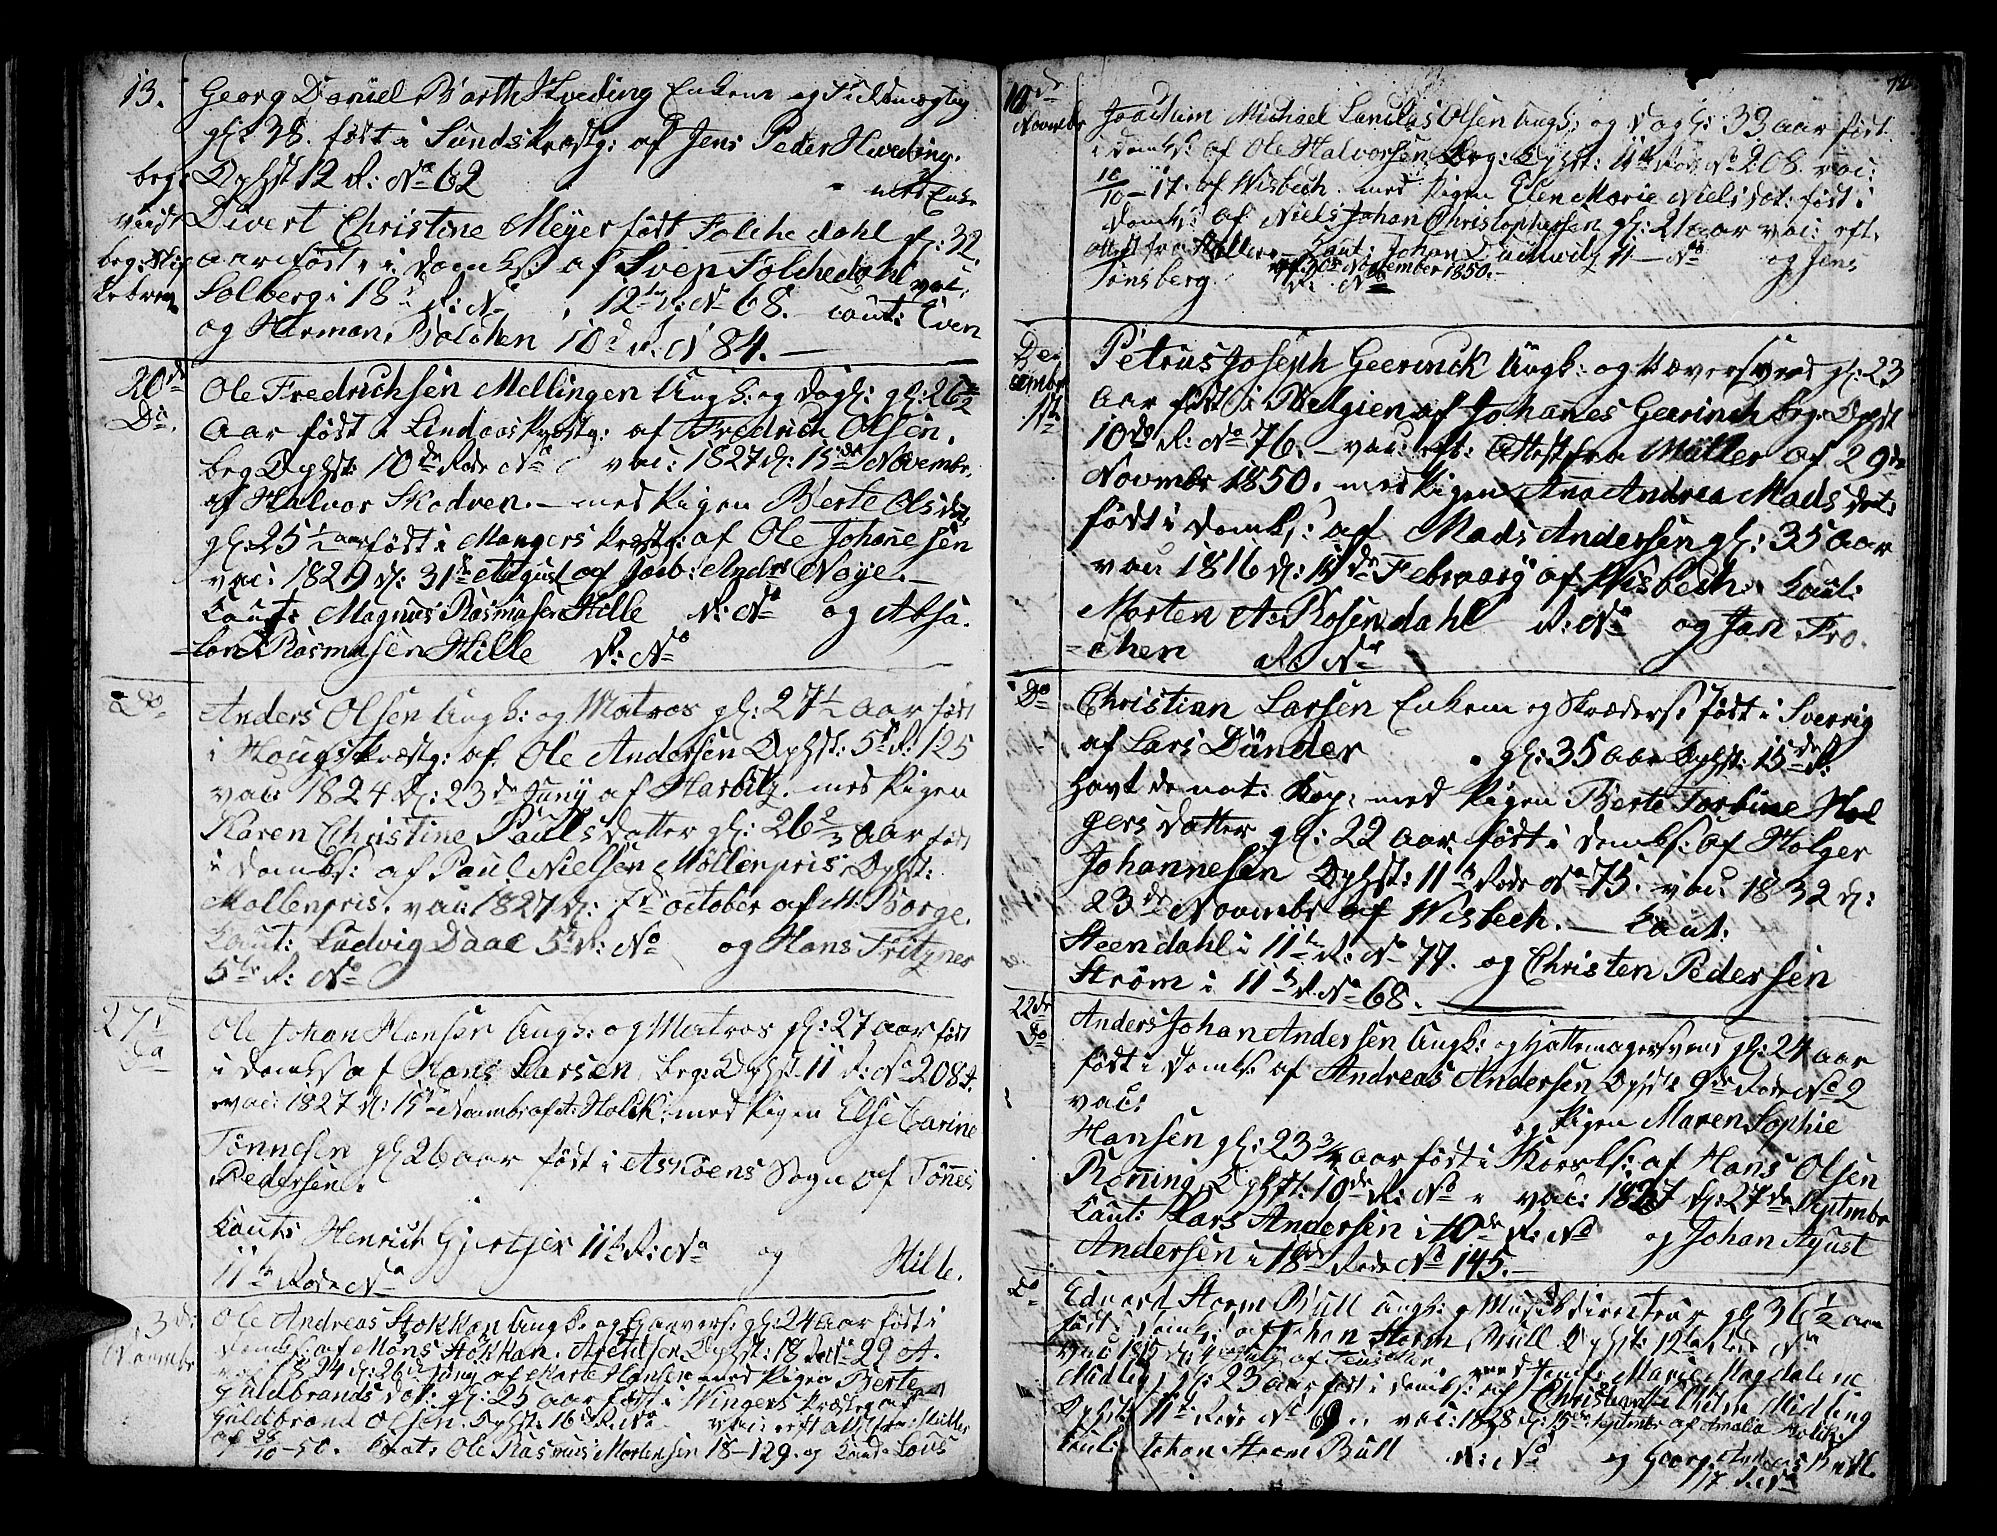 13. Georg Daniel Barth Hveding Enkem og Fuldmægtig
gl: 38. født i Sunds Præstg: af Jens Peder Hveding.
beg: Ophst 12 R: No 62
med Enke
Divert Christine Meyer født Folchedahl gl: 32.
aar født i Domks: af Sven Folchedahl
Solberg i 18d R: No 12te R: No 68. Caut: Even
og Herman Bolchen 10d R. N 84.
20de Do. Ole Fredrichsen Mellingen Ungk: og Dagl: gl: 26½
Aar født i Lindaas Præstg: af Fredrich Olsen.
beg Ophst: 10de Rode No vac: 1827 d: 15de Novembr.
af Halvor Skodven. med Pigen Berte Olsdat.
gl: 25½ aar født i Mangers Præstg: af Ole Johanesen
vac: 1829 d: 31de August af Jacb: Andrs Noye.
Caut: Magnus Rasmusen Hille R: No og Absa-
lon Rasmusen Hille R: No
Do Anders Olsen Ungk: og Matros gl: 27½ Aar født
i Hougs Præstg: af Ole Andersen Ophst: 5te R: 125
vac: 1824 d: 23de Juny af Harbitz. med Pigen
Karen Christine Pauls datter gl: 26⅔ Aar født
i Domks: af Paul Nielsen Möllenpris, Ophst:
Mollenpris. vac: 1827 d: 7de october af M: Borge.
Caut: Ludvig Daae 5te R: No og Hans Fritzner
5te R: No
27de Do Ole Johan Hansen Ungk: og Matros gl: 27 aar født
i Domks af Hans Larsen, beg: Ophst 11 R: No 208
vac: 1827 d: 15de Novembr af A: Holck: med Pigen Else Carine
Tönnesen gl 26 aar født i Askoens Sogn af Tönnes
Pedersen.
Caut: Henrich Gjertsen 11te R: No og Hille.
11te Rode No
3de Novembr Ole Andreas Stokkan Ungk. og Garvers: gl: 24 Aar født i
Domks: af Mons Stokkan. Arentsen Ophst: 18 Rode 29 A.
vac: 1824 d: 26de Juny af Marte Hansen med Pigen Berte
Guldbrands dat: gl: 25 aar født i Wingers Præsteg af
Guldbrand Olsen. Ophst: 16de R: No vac: efter Attest fra Müller
af 28/10-50. Caut: Ole Rasmus Mortensen 18-129. og Lous
10de Novembr Joachim Michael Lanulas Olsen Ungk: og Dagl: 33 aar født
i Domks: af Ole Halvorsen beg: Ophst: 11te Rode No 208. vac:
10/10-17. af Wisbech. med Pigen Elen Marie Niels dat: født i
Domks: af Niels Johan Christophersen gl: 21 aar vac: eft.
Attest fra Müller Caut: Johan Ludwig 11 - No og Jens
af 30te November 1850.
Tønsberg R: No
December 1te Petrus Joseph Geerinck Ungk: og Væversvend gl: 23
Aar født i Belgien af Johanes Geerinch beg: Ophst
10de R: No 76. vac: eft: Attest fra Müller af 29de
Novembr 1850. med Pigen Ana Andrea Mads dat:
født i Domks: af Mads Andersen gl: 35 aar
vac: 1816 d: 11de February af Wisbech. Caut:
Morten A: Rosendahl R: No og Jan Fro-
chen R: No
Do Christian Larsen Enkem og Skræders: født i Sverrig
af Lars Dänder gl: 35 Aar Ophst: 15de R:
havt de nat: Kop: med Pigen Berte Torbine Hol
gers datter gl: 22 aar født i Domks: af Holger
Johannesen Ophst: 11te Rode No 75. vac: 1832 d:
23de Novembr af Wisbech. Caut:
Steendahl i 11te R: No 77. og Christen Pedersen
Strøm i 11te R: No 68.
22de Do Anders Johan Andersen Ungk: og Hattemagersvend gl: 24 aar
født i Domk: af Andreas Andersen Ophst 9de Rode No 2
vac: og Pigen Maren Sophie
Hansen gl: 23¾ aar født i Korsks: af Hans Olsen
Roning. Ophst: 10de R: No vac: 1827 d: 27de Septembr
Caut: Lars Andersen i 10de R: No og Johan Agust
Andersen i 18de Rode No 145.
Do Eduard Storm Bull Ungk: og Musikdirecteur gl: 36½ aar
født i Domks: af Johan Storm Bull Ophst: 12te Rode No
vac: 18 d: 4 July af med Jomfr: Marie Magdalene
Midling gl: 23 aar født i Domks: af Christian Midling
Ophst: 11te Rode No 69 vac: 1828 d: 15de Septembr af Amalia Holck.
Caut: Johan Storm Bull R: No og Georg Andreas Bull.
17 R: No